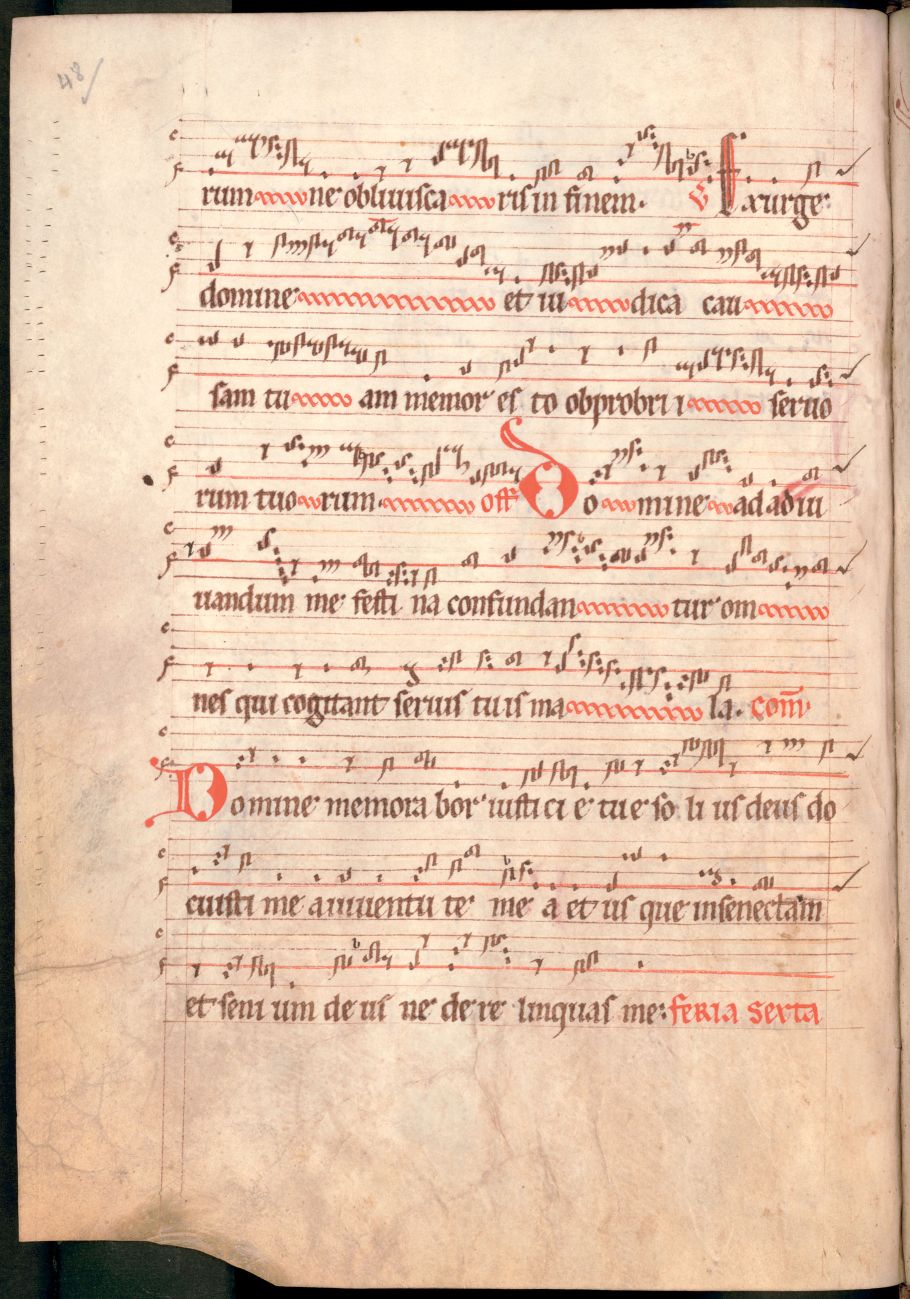 48/
rum ne obliuisca ris in finem. V Exurge
domine et iu dica cau
sam tu am memor es to obprobri i seruo
rum tuo rum. off Do mine ad adiu
uandum me festi na confundan tur om
nes qui cogitant seruis tuis ma la. com
Domine memora bor iusti ci e tu e so li us deus do
cuisti me a iuuentu te me a et us que in senectam
et seni um de us ne de re linquas me: feria sexta